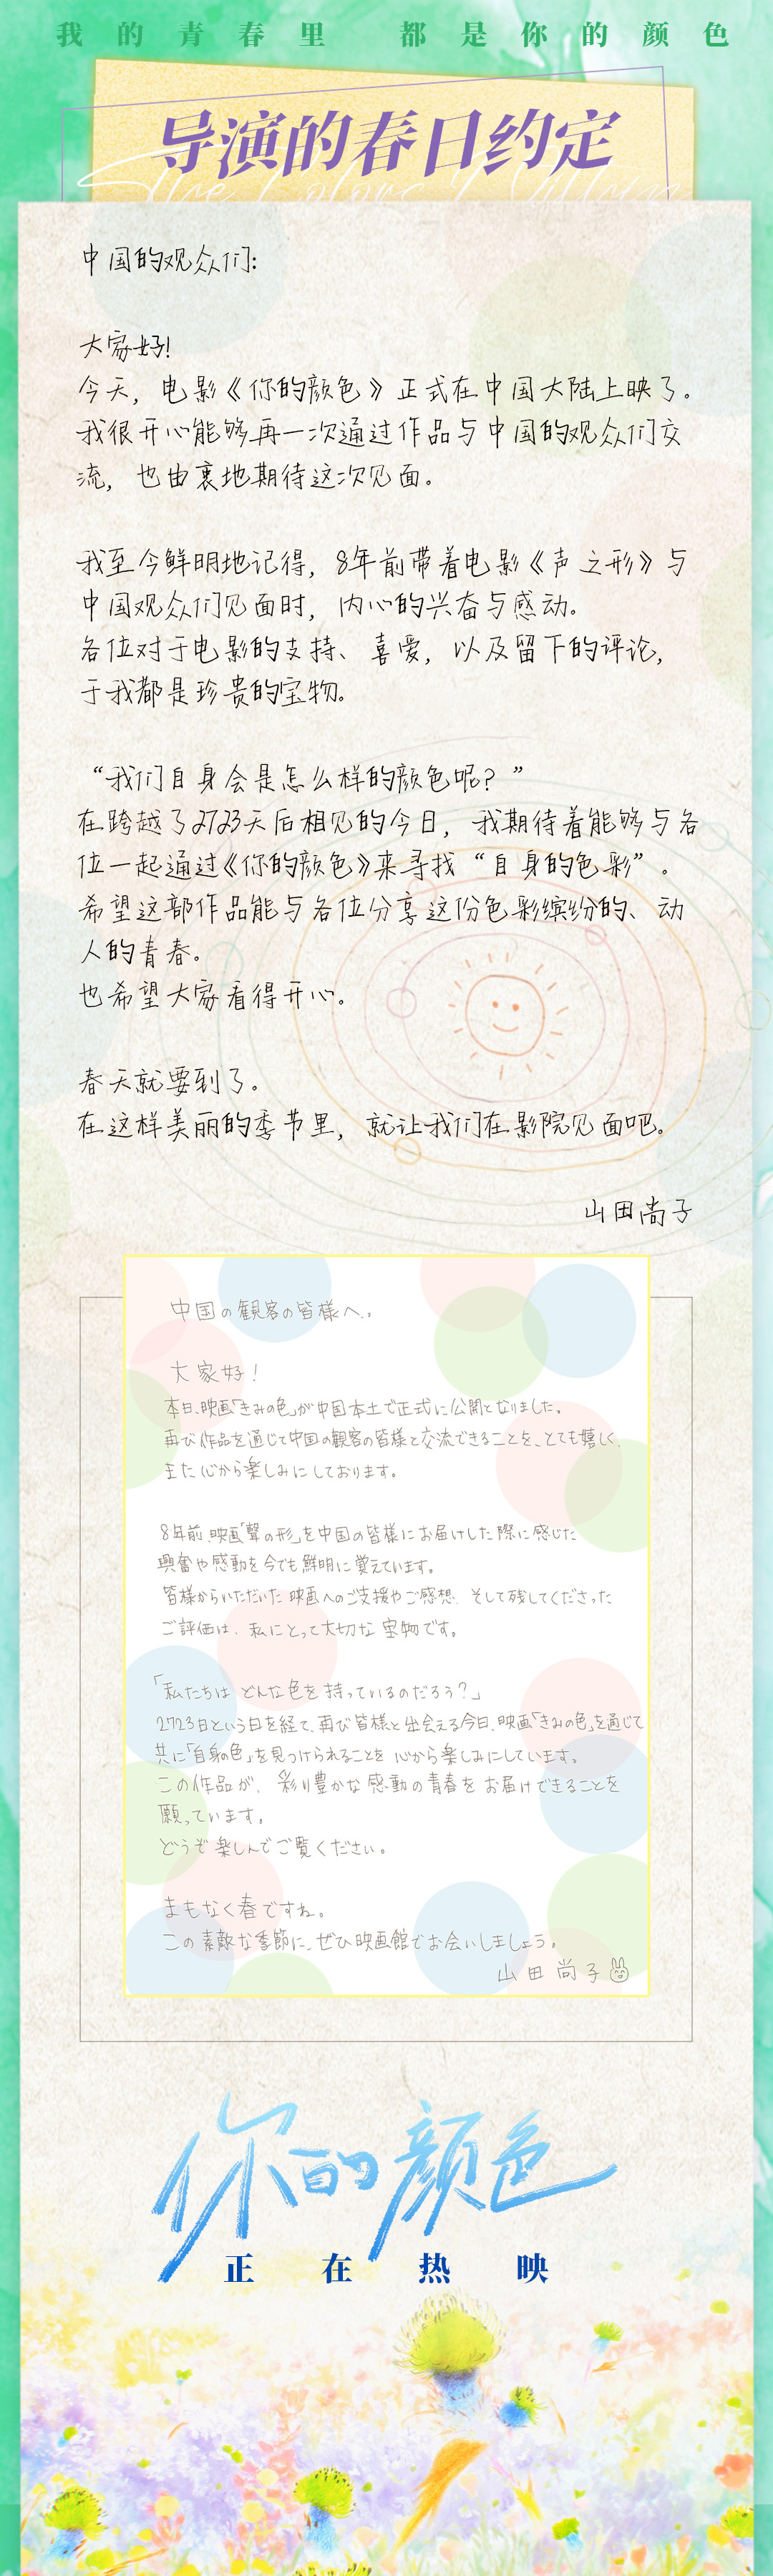 我的青春里 都是你的颜色
导演的春日约定
中国的观众们:
大家好!
今天, 电影《你的颜色》正式在中国大陆上映了。
我很开心能够再一次通过作品与中国的观众们交
流, 也由衷地期待这次见面。
我至今鲜明地记得, 8年前带着电影《声之形》与
中国观众们见面时, 内心的兴奋与感动。
各位对于电影的支持、喜爱, 以及留下的评论,
于我都是珍贵的宝物。
“我们自身会是怎么样的颜色呢?”
在跨越了2723天后相见的今日, 我期待着能够与各
位一起通过《你的颜色》来寻找“自身的色彩”。
希望这部作品能与各位分享这份色彩缤纷的、动
人的青春。
也希望大家看得开心。
春天就要到了。
在这样美丽的季节里, 就让我们在影院见面吧。
山田尚子
中国の観客の皆様へ。
大家好!
本日、映画「きみの色」が中国本土で正式に公開となりました。
再び作品を通じて中国の観客の皆様と交流できることを、とても嬉しく、
また心から楽しみにしております。
8年前、映画「聲の形」を中国の皆様にお届けした際に感じた
興奮や感動を今でも鮮明に覚えています。
皆様からいただいた映画へのご支援やご感想、そして残してくださった
ご評価は、私にとって大切な宝物です。
「私たちはどんな色を持っているのだろう?」
2723日という日を経て、再び皆様と出会える今日、映画「きみの色」を通じて
共に「自身の色」を見つけられることを心から楽しみにしています。
この作品が、彩り豊かな感動の青春をお届けできることを
願っています。
どうぞ楽しんでご覧ください。
まもなく春ですね。
この素敵な季節に、ぜひ映画館でお会いしましょう。
山田尚子
你的颜色
正在热映